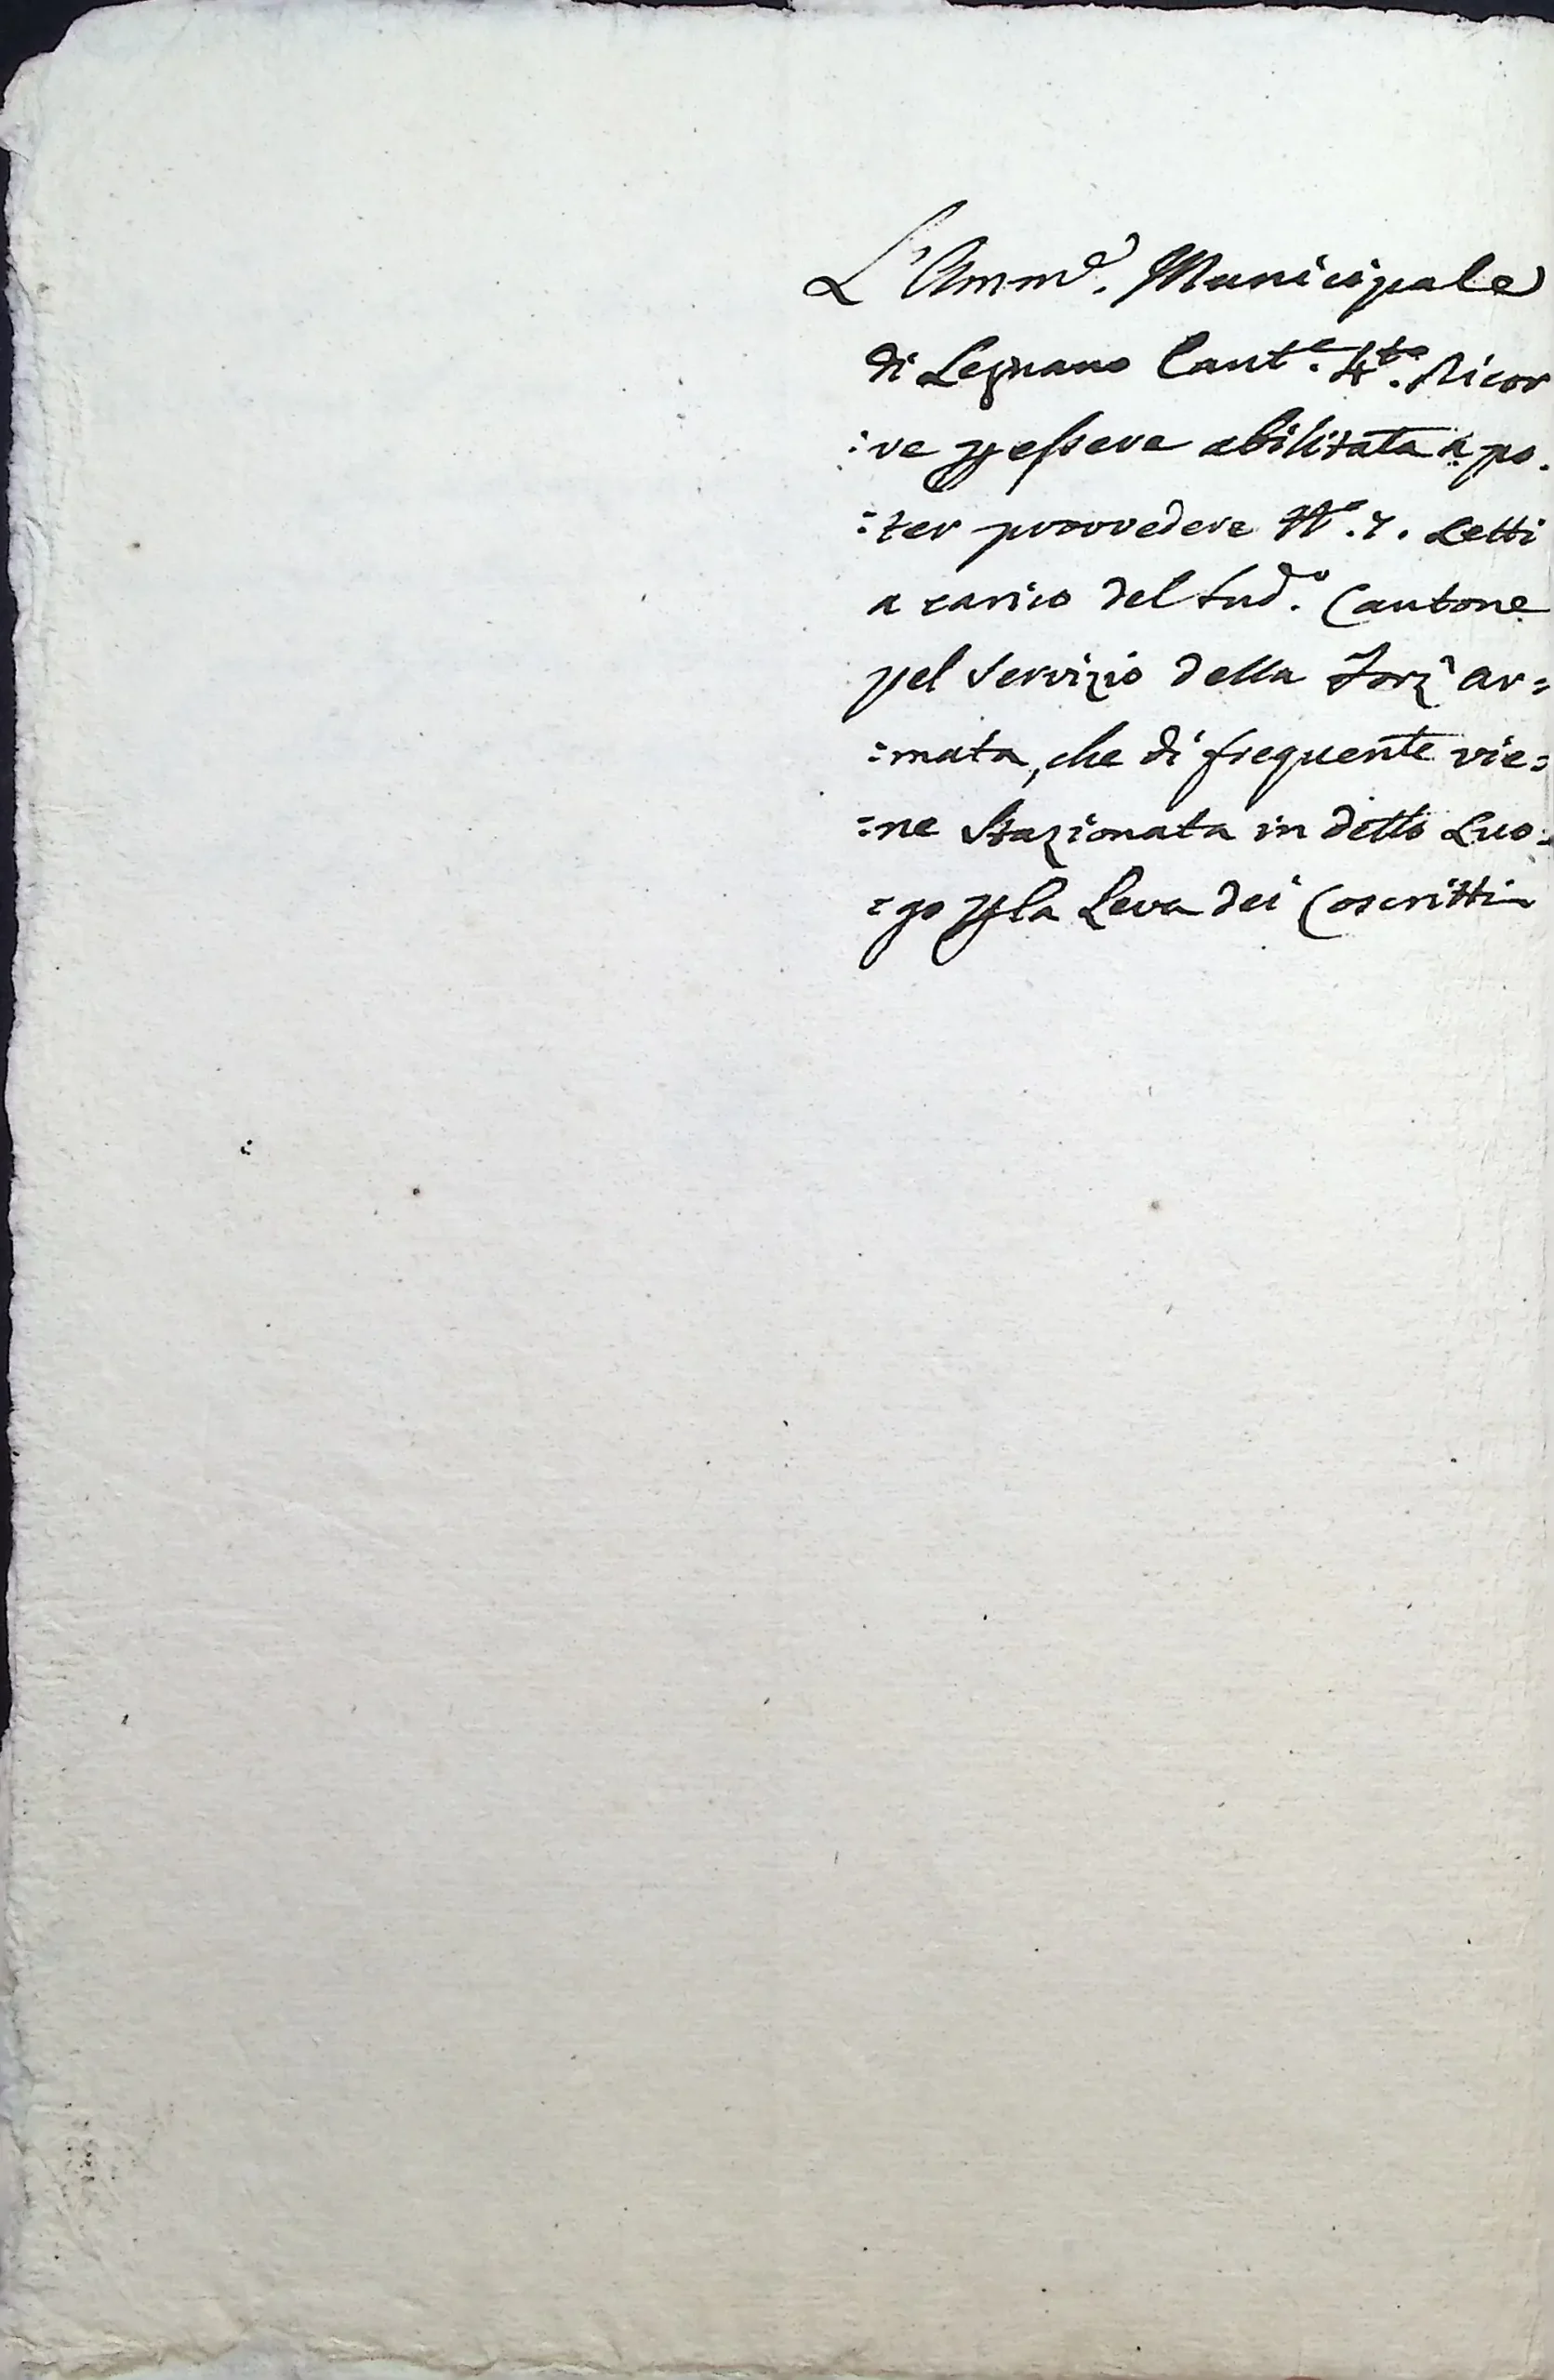 L'Amm.e Municipale
di Legnano Cant.e 4.to Ricor
:re p essere abilitata a po:
:ter provvedere N.o 7. Letti
a carico del sud.o Cantone
pel servizio della Forz'ar=
:mata, che di frequente vie=
=ne stazionata in detto Luo=
=go p la Leva dei Coscritti